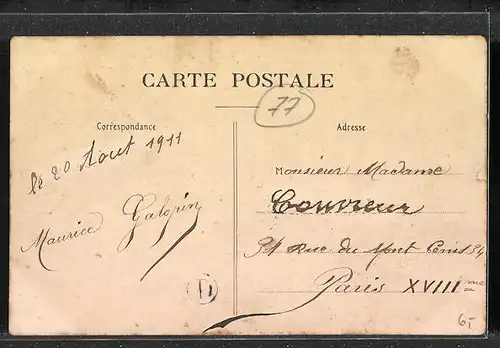 CARTE POSTALE
77
Correspondance
Adresse
le 20 Aout 1911
Maurice Galopin
Monsieur Madame
Couvreur
34 Rue du Mont Cenis 34
Paris XVIII me
D
6,-